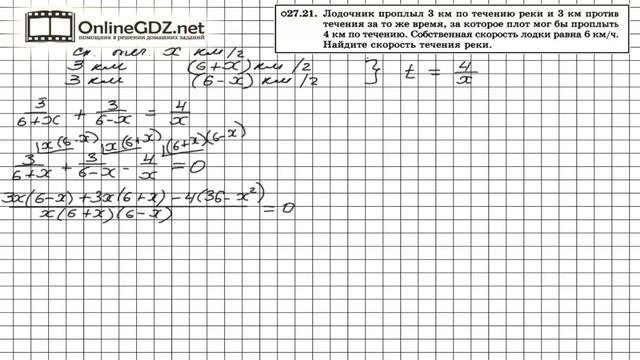 OnlineGDZ.net
помощники в решении домашних заданий
○27.21. Лодочник проплыл 3 км по течению реки и 3 км против
течения за то же время, за которое плот мог бы проплыть
4 км по течению. Собственная скорость лодки равна 6 км/ч.
Найдите скорость течения реки.
Ск. теч. x км/ч
3 км (6+x) км/ч
3 км (6-x) км/ч } t = 4/x
3/(6+x) + 3/(6-x) = 4/x
|x(6-x) |x(6+x) |(6+x)(6-x)
3/(6+x) + 3/(6-x) - 4/x = 0
(3x(6-x) + 3x(6+x) - 4(36-x²))/(x(6+x)(6-x)) = 0